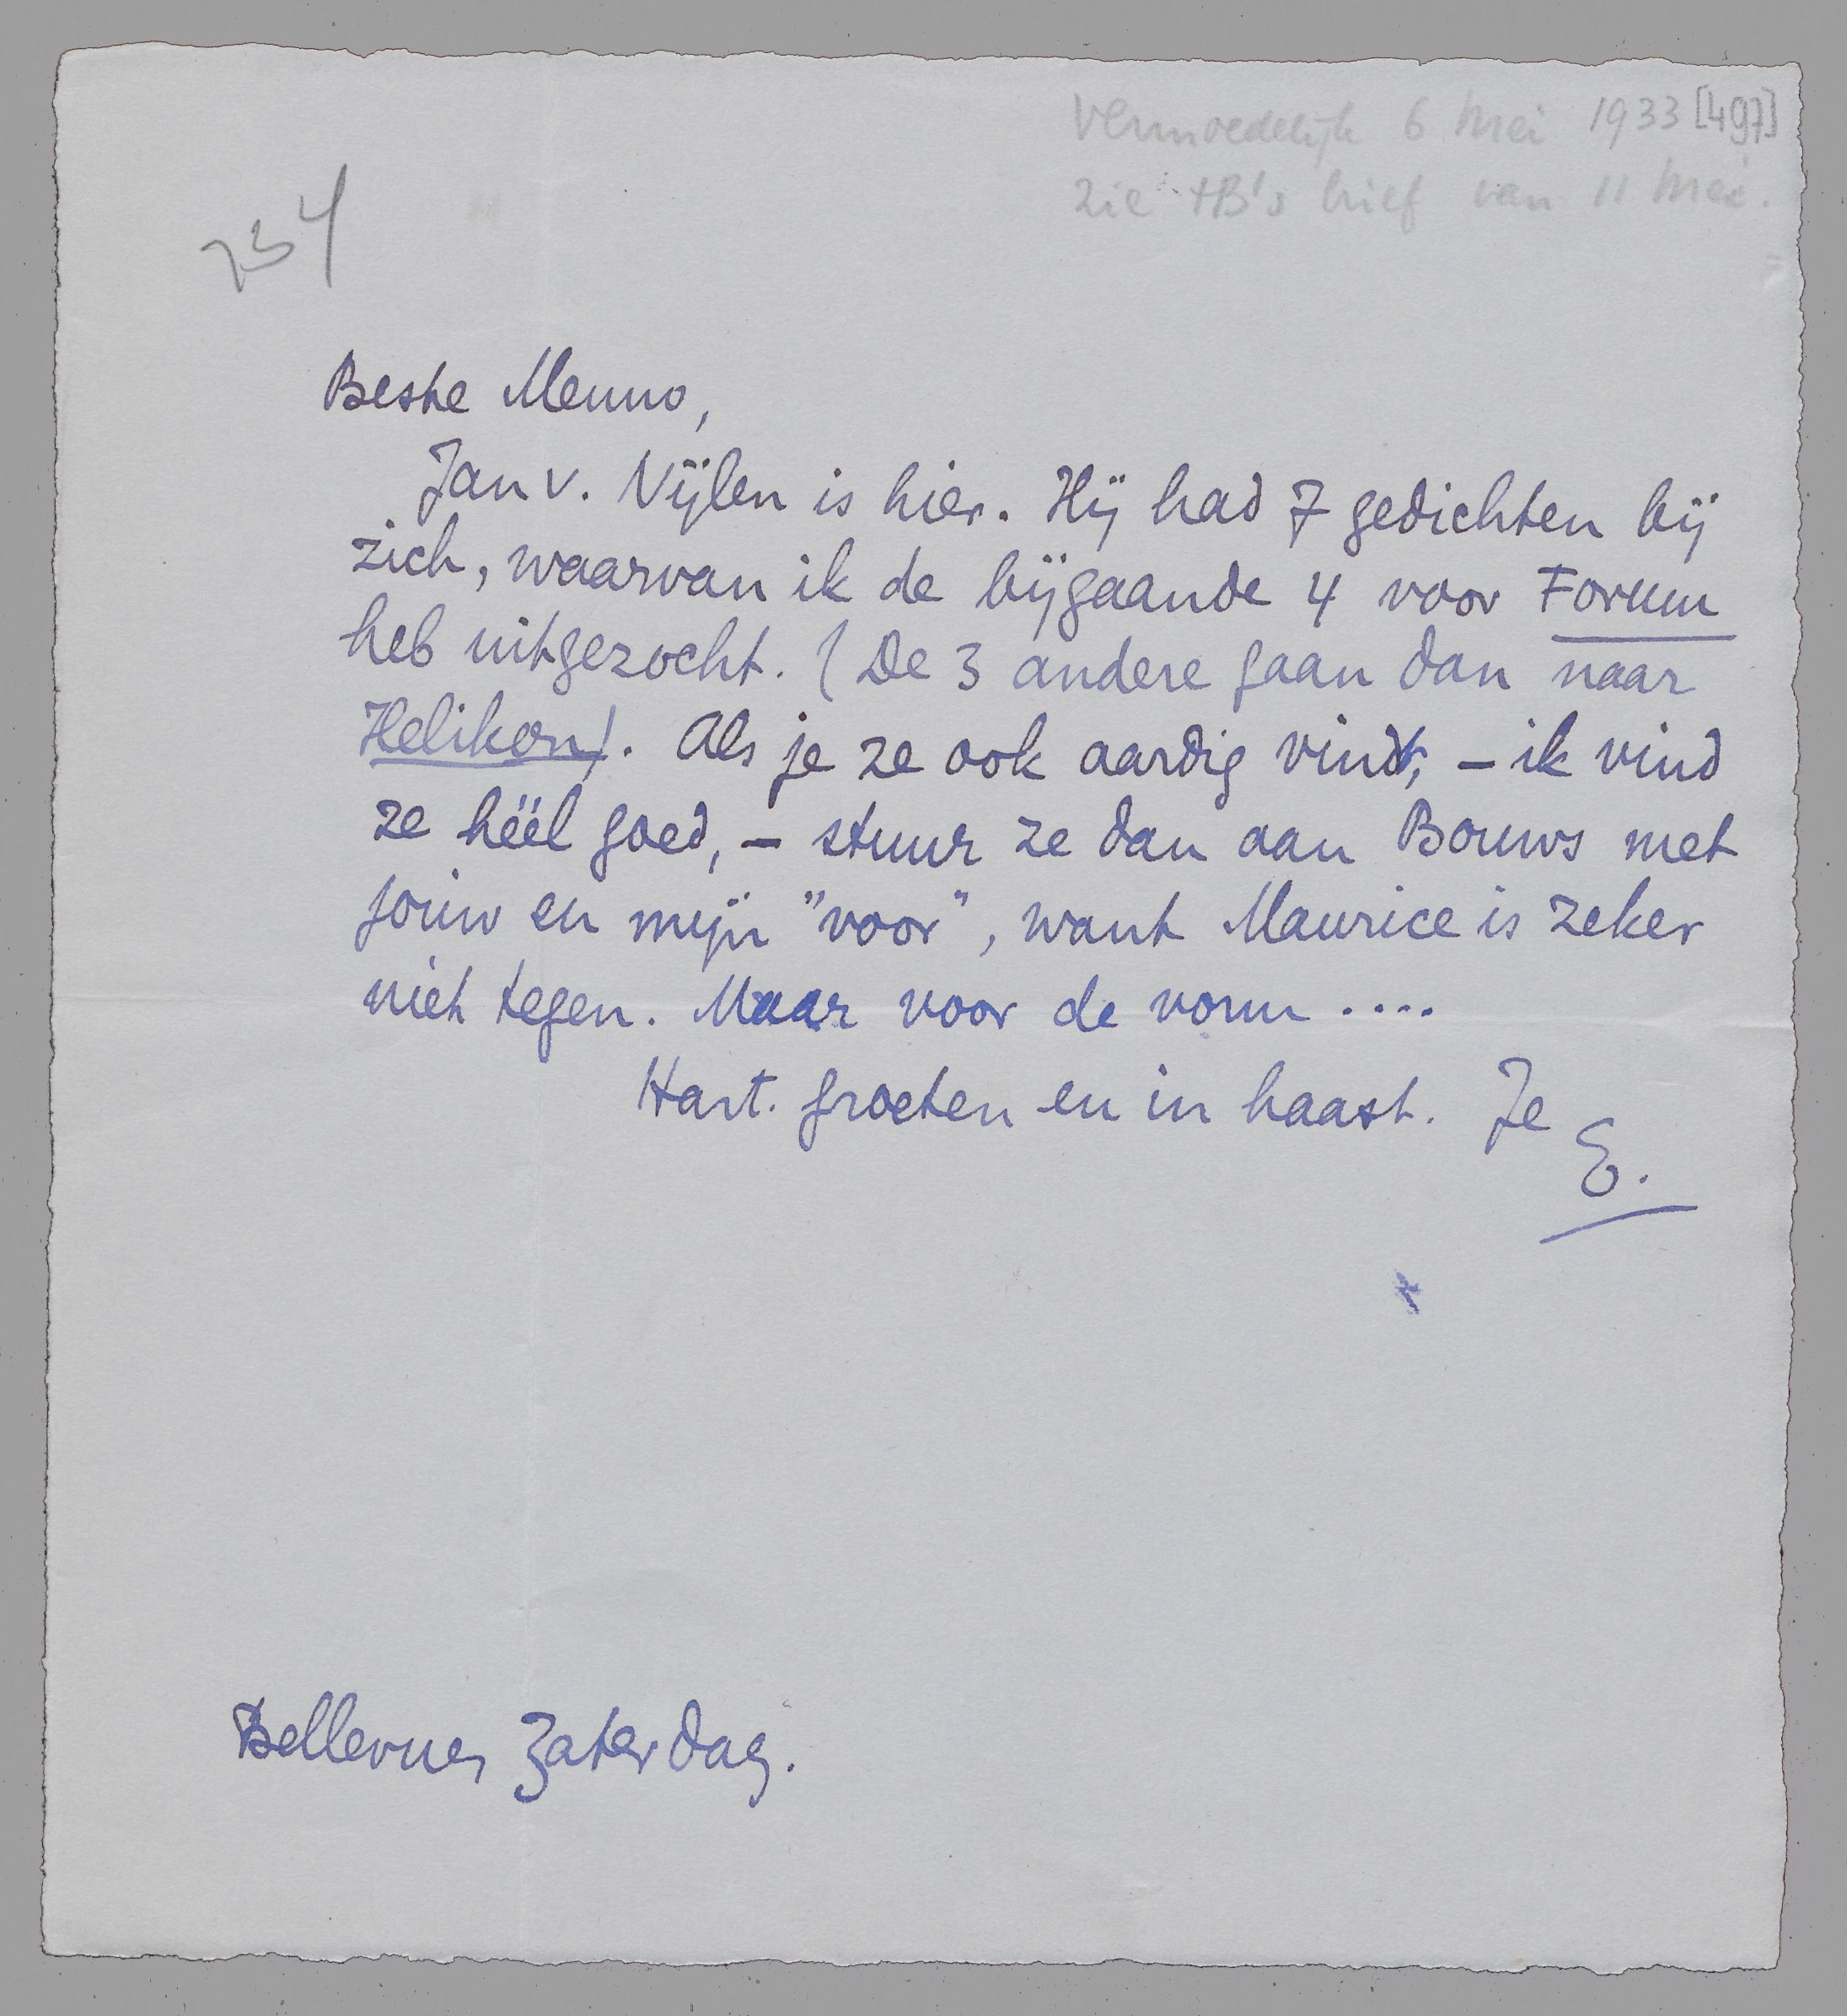 Vermoedelijk 6 Mei 1933 [497]
zie tB's brief van 11 Mei.
234
Beste Menno,
Jan v. Nijlen is hier. Hij had 7 gedichten bij
zich, waarvan ik de bijgaande 4 voor Forum
heb uitgezocht. (De 3 andere gaan dan naar
Helikon). Als je ze ook aardig vindt, – ik vind
ze héél goed, – stuur ze dan aan Bouws met
jouw en mijn "voor", want Maurice is zeker
niet tegen. Maar voor de vorm ....
Hart. groeten en in haast. Je
E.
Bellevue, Zaterdag.